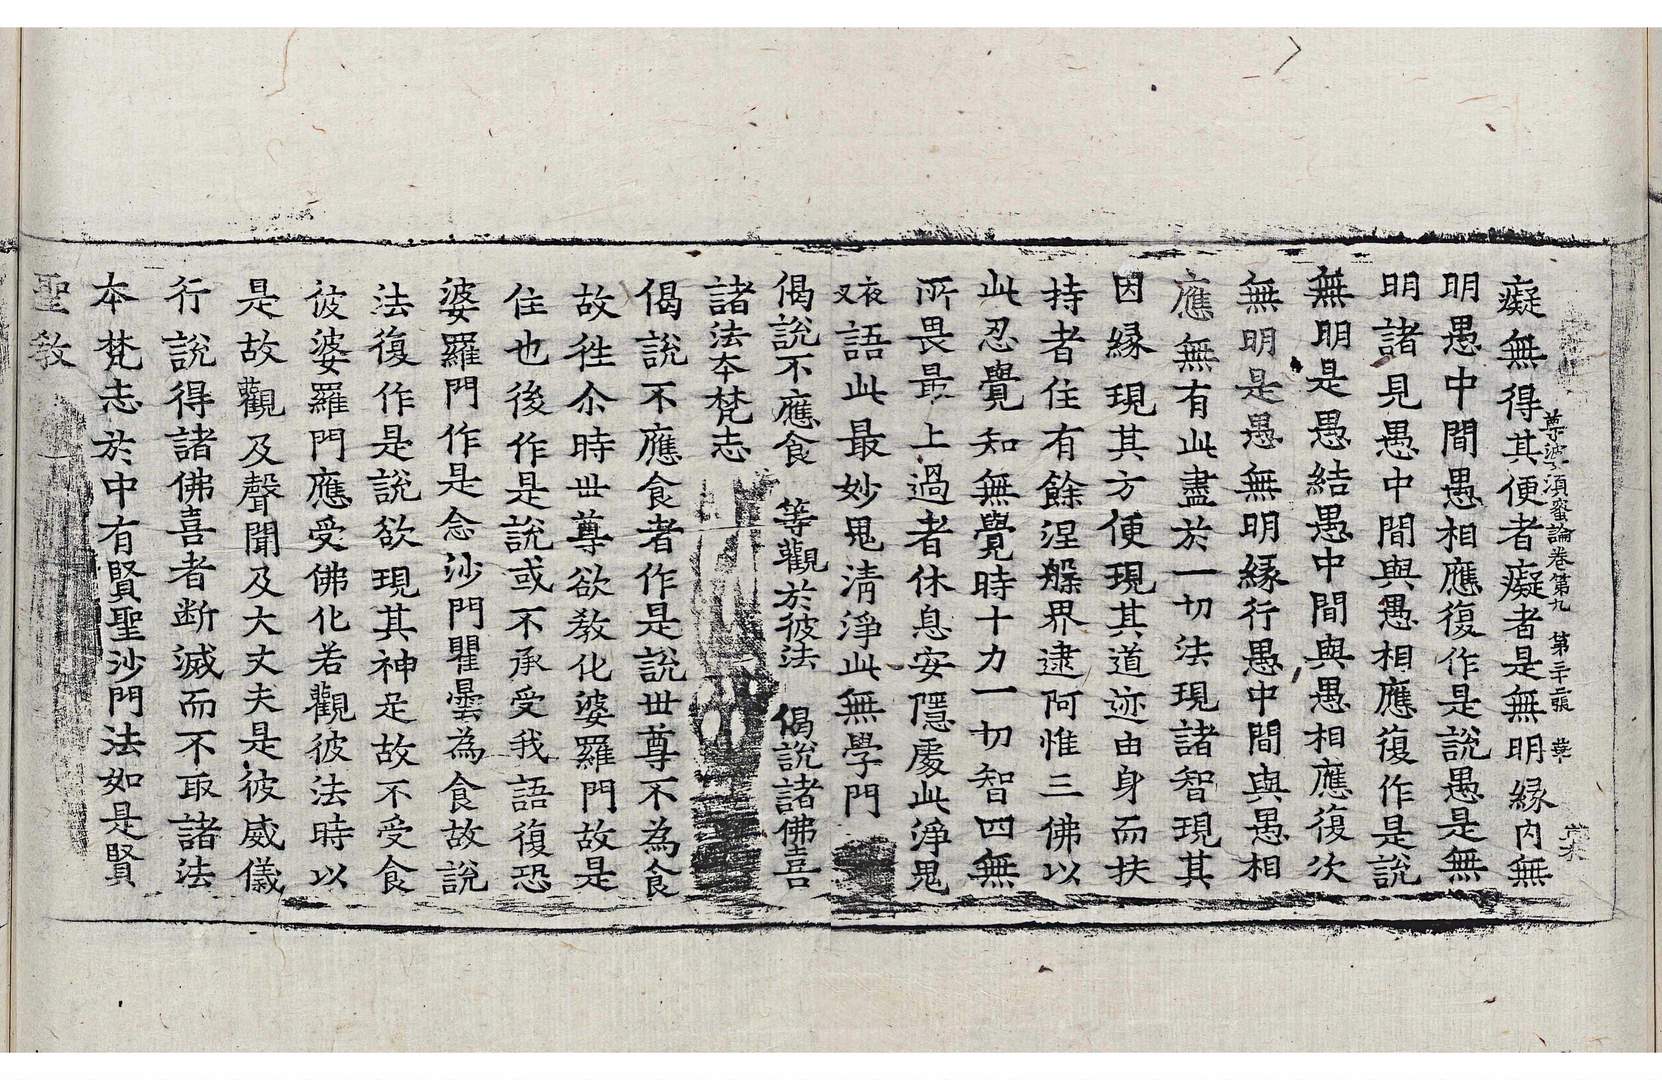 尊婆須蜜論卷第九　第三十二張　華
癡無得其便者癡者是無明緣内無
明愚中間愚相應復作是說愚是無
明諸見愚中間與愚相應復作是說
無明是愚結愚中間與愚相應復次
無明是愚無明緣行愚中間與愚相
應無有此盡於一切法現諸智現其
因緣現其方便現其道迹由身而扶
持者住有餘涅槃界逮阿惟三佛以
此忍覺知無覺時十力一切智四無
所畏最上過者休息安隱處此淨鬼
夜叉語此最妙鬼清淨此無學門
偈說不應食　等觀於彼法　偈說諸佛喜
諸法本梵志
偈說不應食者作是說世尊不為食
故往尒時世尊欲教化婆羅門故是
住也後作是說或不承受我語復恐
婆羅門作是念沙門瞿曇為食故說
法復作是說欲現其神足故不受食
彼婆羅門應受佛化若觀彼法時以
是故觀及聲聞及大丈夫是彼威儀
行說得諸佛喜者断滅而不取諸法
本梵志於中有賢聖沙門法如是賢
聖教